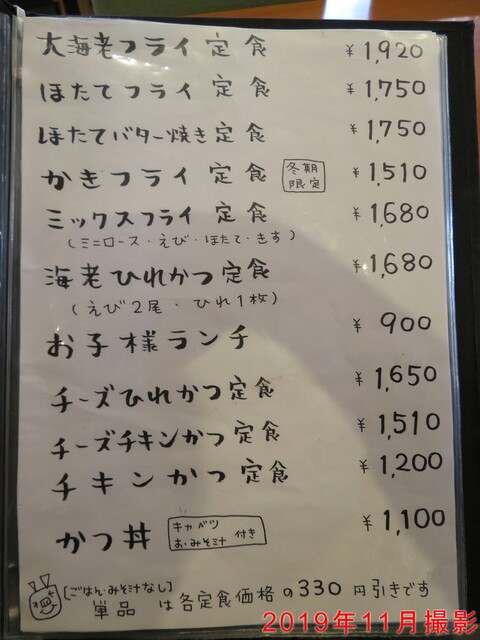 大海老フライ定食 ¥1,920
ほたてフライ定食 ¥1,750
ほたてバター焼き定食 ¥1,750
かきフライ定食 冬期限定 ¥1,510
ミックスフライ定食 ¥1,680
(ミニロース・えび・ほたて・きす)
海老ひれかつ定食 ¥1,680
(えび2尾・ひれ1枚)
お子様ランチ ¥900
チーズひれかつ定食 ¥1,650
チーズチキンかつ定食 ¥1,510
チキンかつ定食 ¥1,200
かつ丼 キャベツ おみそ汁 付き ¥1,100
[ごはん・みそ汁なし]
単品は各定食価格の330円引きです
2019年11月撮影